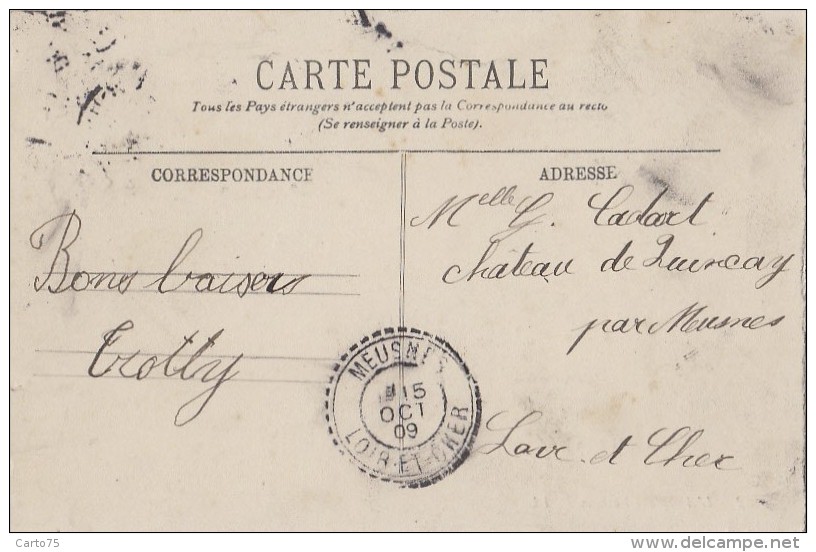 CARTE POSTALE
Tous les Pays étrangers n'acceptent pas la Correspondance au recto
(Se renseigner à la Poste).
CORRESPONDANCE
ADRESSE
Bons baisers
Trotty
Melle G. Cadart
château de Quincay
par Meusnes
Loir et Cher
MEUSNES
15
OCT
09
LOIR-ET-CHER
Carto75
www.delcampe.net